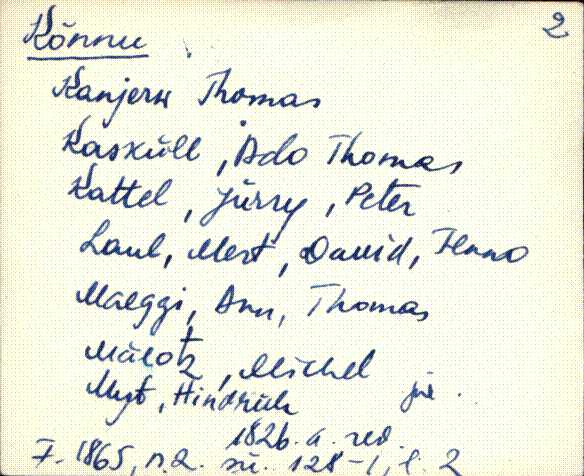 Könnu 2
Kanjerw Thomas
Kasküll, Ado Thomas
Kattel, Jürry, Peter
Laul, Mert, David, Henno
Maeggi, Ann, Thomas
Mälotz, Michel
Myt, Hindrich
1826. a. rev.
F. 1865, n. 2. sü. 128-1, l. 2